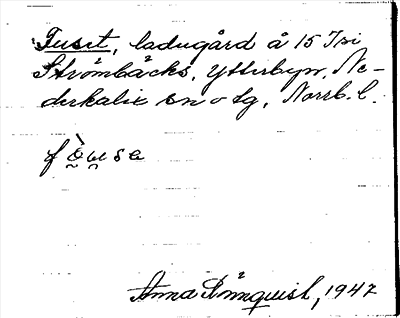 Fuset, ladugård å 15 Isi
Strömbäcks, Ytterbyn, Ne-
derkalix sn o tg, Norrb. l.
fò̬u̯sa
Anna Lönnquist, 1947